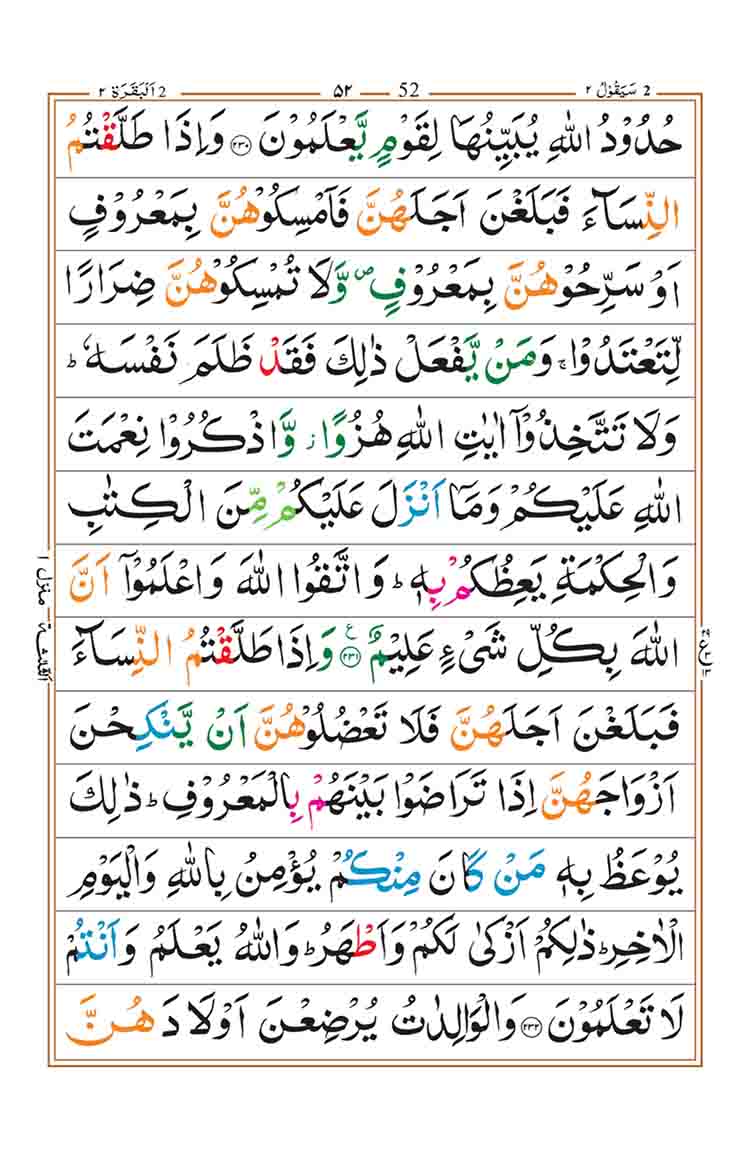 2 سَيَقُوْلُ ٢ 52 ۵۲ 2 اَلْبَقَرَة ٢
حُدُوْدُ اللّٰهِ يُبَيِّنُهَا لِقَوْمٍ يَّعْلَمُوْنَ ۝۲۳۰ وَاِذَا طَلَّقْتُمُ
النِّسَآءَ فَبَلَغْنَ اَجَلَهُنَّ فَاَمْسِكُوْهُنَّ بِمَعْرُوْفٍ
اَوْ سَرِّحُوْهُنَّ بِمَعْرُوْفٍ ۪ وَّلَا تُمْسِكُوْهُنَّ ضِرَارًا
لِّتَعْتَدُوْا ۚ وَمَنْ يَّفْعَلْ ذٰلِكَ فَقَدْ ظَلَمَ نَفْسَهٗ ؕ
وَلَا تَتَّخِذُوْۤا اٰيٰتِ اللّٰهِ هُزُوًا ؗ وَّاذْكُرُوْا نِعْمَتَ
اللّٰهِ عَلَيْكُمْ وَمَاۤ اَنْزَلَ عَلَيْكُمْ مِّنَ الْكِتٰبِ
وَالْحِكْمَةِ يَعِظُكُمْ بِهٖ ؕ وَاتَّقُوا اللّٰهَ وَاعْلَمُوْۤا اَنَّ
اللّٰهَ بِكُلِّ شَیْءٍ عَلِيْمٌ ۝۲۳۱ ع وَاِذَا طَلَّقْتُمُ النِّسَآءَ
فَبَلَغْنَ اَجَلَهُنَّ فَلَا تَعْضُلُوْهُنَّ اَنْ يَّنْكِحْنَ
اَزْوَاجَهُنَّ اِذَا تَرَاضَوْا بَيْنَهُمْ بِالْمَعْرُوْفِ ؕ ذٰلِكَ
يُوْعَظُ بِهٖ مَنْ كَانَ مِنْكُمْ يُؤْمِنُ بِاللّٰهِ وَالْيَوْمِ
الْاٰخِرِ ؕ ذٰلِكُمْ اَزْكٰى لَكُمْ وَاَطْهَرُ ؕ وَاللّٰهُ يَعْلَمُ وَاَنْتُمْ
لَا تَعْلَمُوْنَ ۝۲۳۲ وَالْوَالِدٰتُ يُرْضِعْنَ اَوْلَادَهُنَّ
منزل ١
الثلٰثة